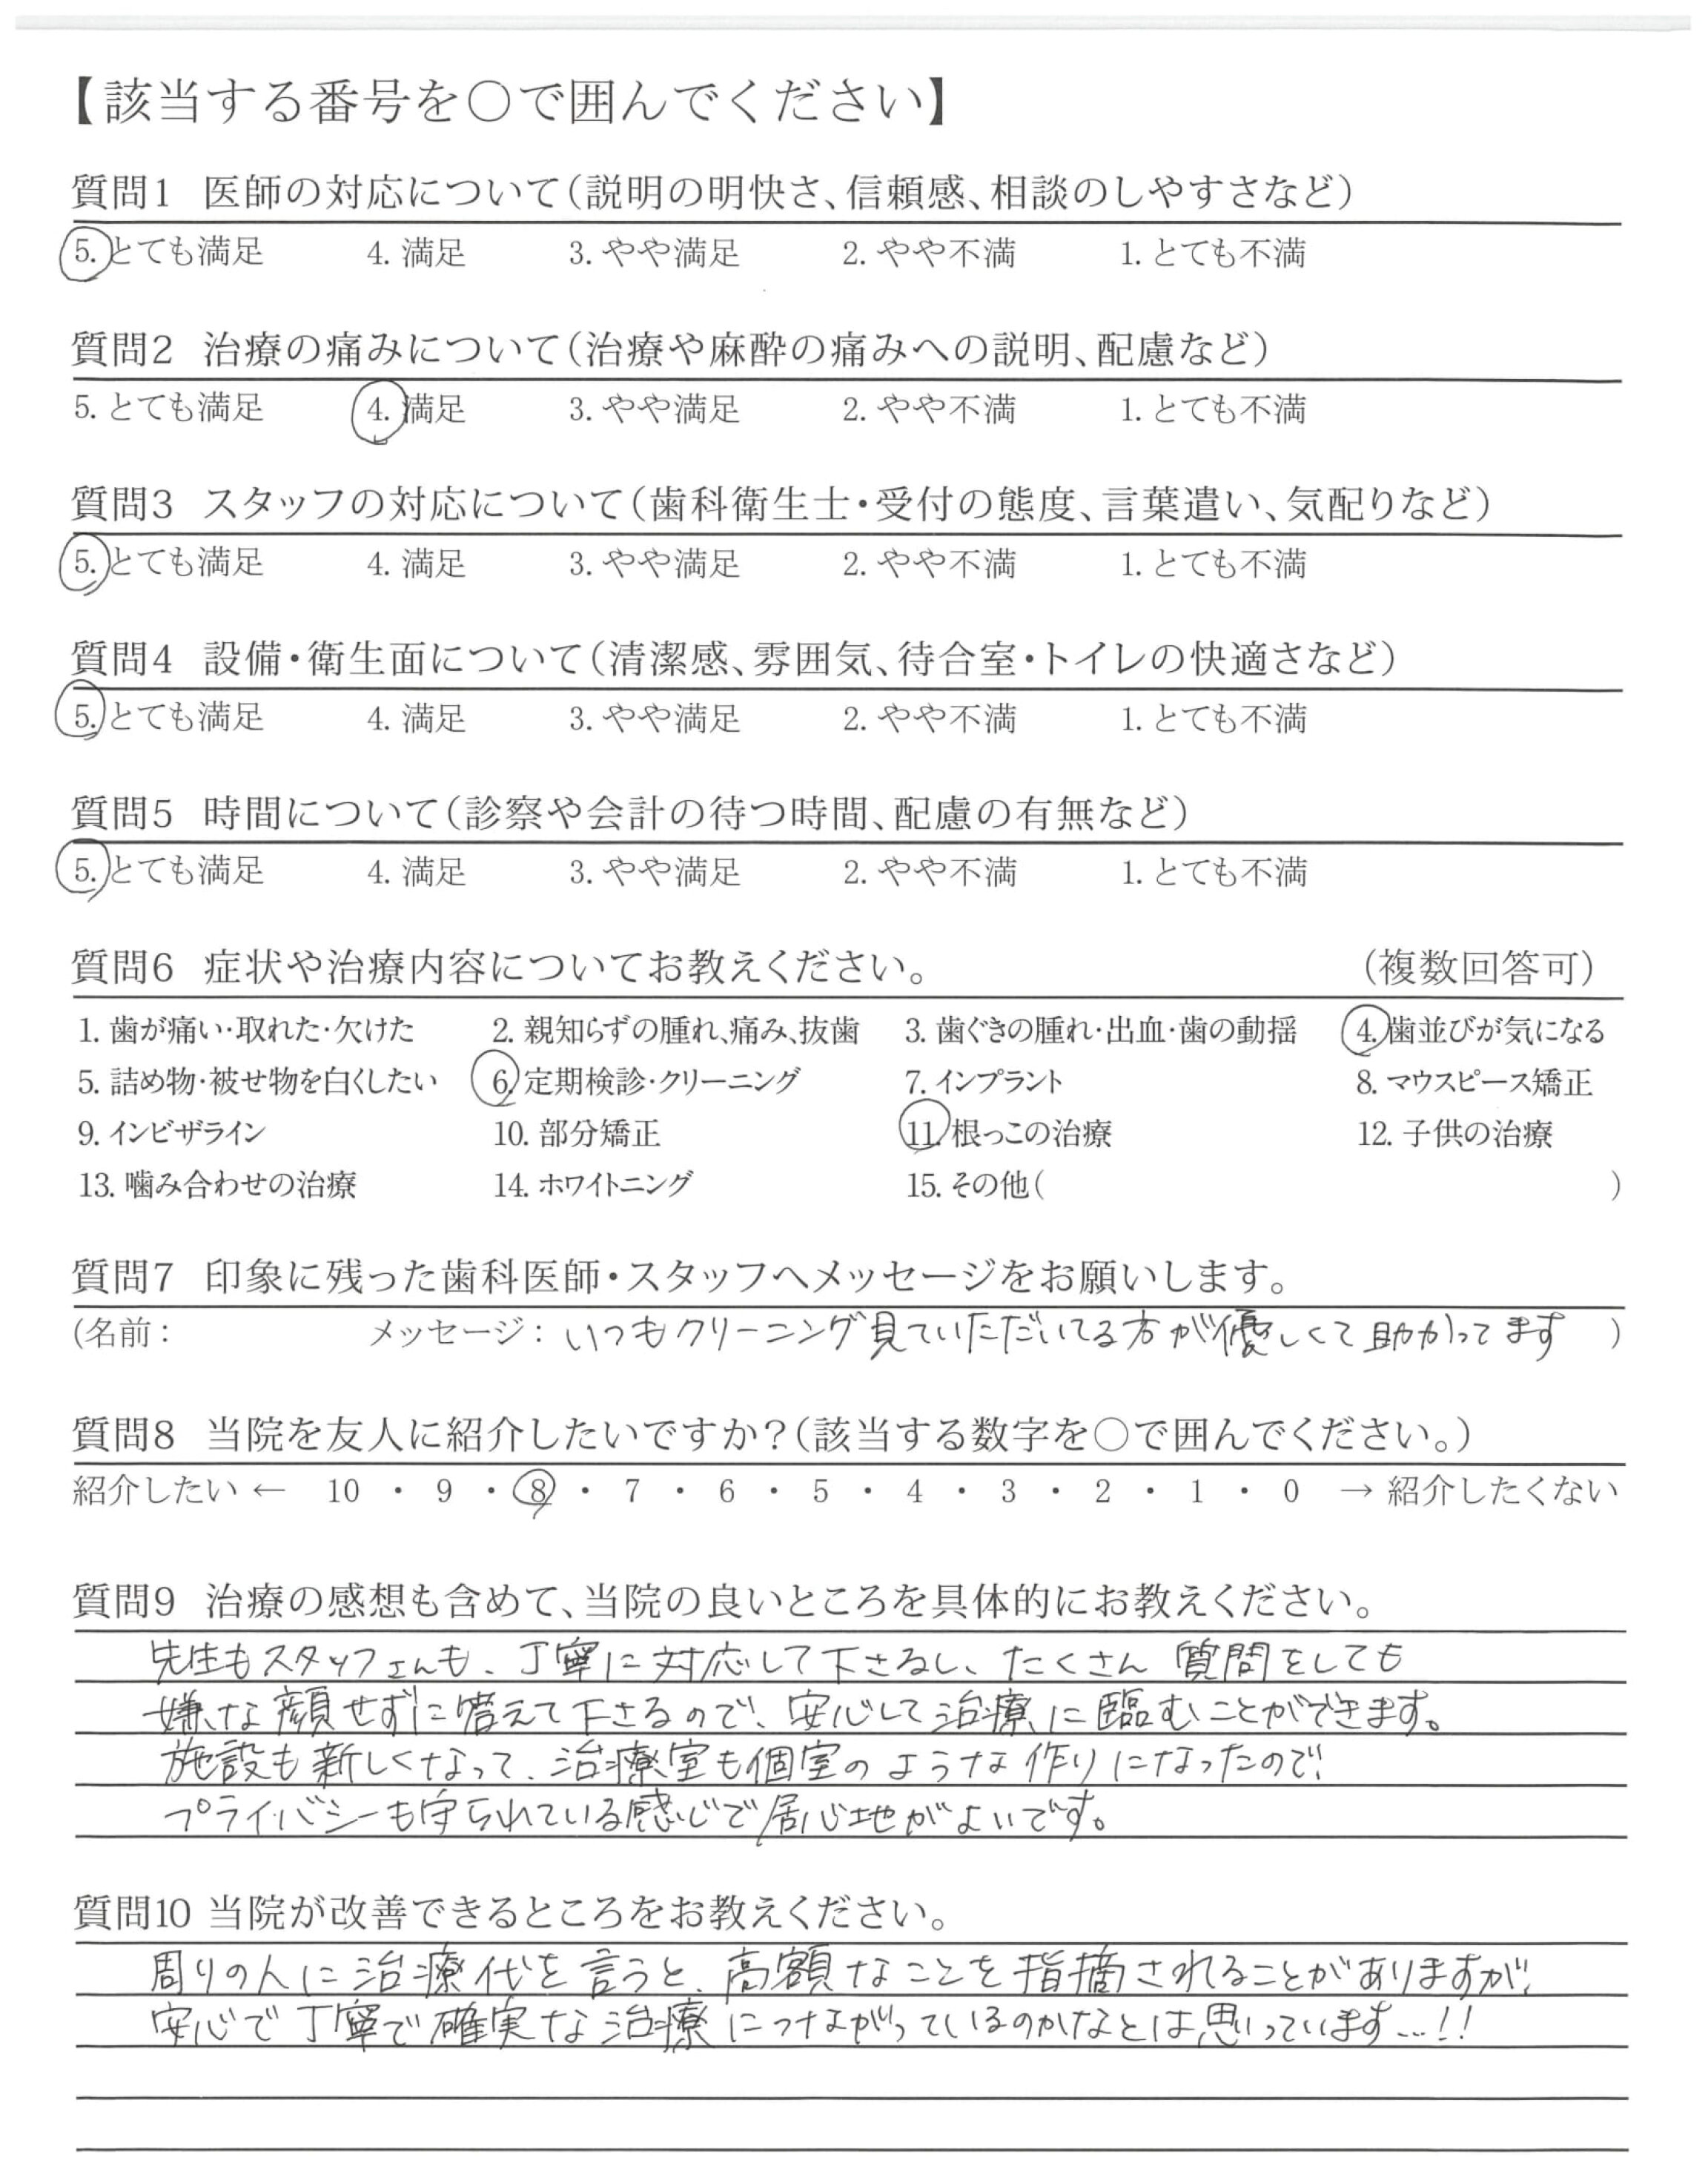 【該当する番号を○で囲んでください】
質問1 医師の対応について(説明の明快さ、信頼感、相談のしやすさなど)
5. とても満足 4. 満足 3. やや満足 2. やや不満 1. とても不満
質問2 治療の痛みについて(治療や麻酔の痛みへの説明、配慮など)
5. とても満足 4. 満足 3. やや満足 2. やや不満 1. とても不満
質問3 スタッフの対応について(歯科衛生士・受付の態度、言葉遣い、気配りなど)
5. とても満足 4. 満足 3. やや満足 2. やや不満 1. とても不満
質問4 設備・衛生面について(清潔感、雰囲気、待合室・トイレの快適さなど)
5. とても満足 4. 満足 3. やや満足 2. やや不満 1. とても不満
質問5 時間について(診察や会計の待つ時間、配慮の有無など)
5. とても満足 4. 満足 3. やや満足 2. やや不満 1. とても不満
質問6 症状や治療内容についてお教えください。 (複数回答可)
1. 歯が痛い・取れた・欠けた 2. 親知らずの腫れ、痛み、抜歯 3. 歯ぐきの腫れ・出血・歯の動揺 4. 歯並びが気になる
5. 詰め物・被せ物を白くしたい 6. 定期検診・クリーニング 7. インプラント 8. マウスピース矯正
9. インビザライン 10. 部分矯正 11. 根っこの治療 12. 子供の治療
13. 噛み合わせの治療 14. ホワイトニング 15. その他( )
質問7 印象に残った歯科医師・スタッフへメッセージをお願いします。
(名前: メッセージ: いつもクリーニング見ていただいてる方が優しくて助かってます )
質問8 当院を友人に紹介したいですか?(該当する数字を○で囲んでください。)
紹介したい ← 10 ・ 9 ・ 8 ・ 7 ・ 6 ・ 5 ・ 4 ・ 3 ・ 2 ・ 1 ・ 0 → 紹介したくない
質問9 治療の感想も含めて、当院の良いところを具体的にお教えください。
先生もスタッフさんも、丁寧に対応して下さるし、たくさん質問をしても
嫌な顔せずに答えて下さるので、安心して治療に臨むことができます。
施設も新しくなって、治療室も個室のような作りになったので、
プライバシーも守られている感じで居心地がよいです。
質問10 当院が改善できるところをお教えください。
周りの人に治療代を言うと、高額なことを指摘されることがありますが、
安心で丁寧で確実な治療につながっているのかなとは思っています…!!